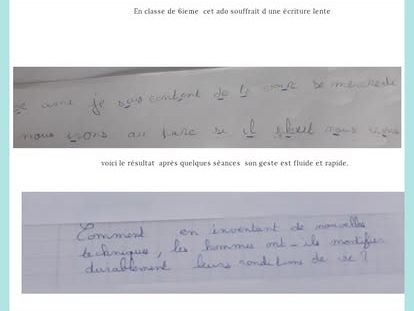 En classe de 6ieme cet ado souffrait d une écriture lente
ami je suis content de la cour de mercredi
nous irons au parc si il pleut nous irons
voici le résultat après quelques séances son geste est fluide et rapide.
Comment en inventant de nouvelles
techniques, les hommes ont-ils modifier
durablement leurs conditions de vie ?